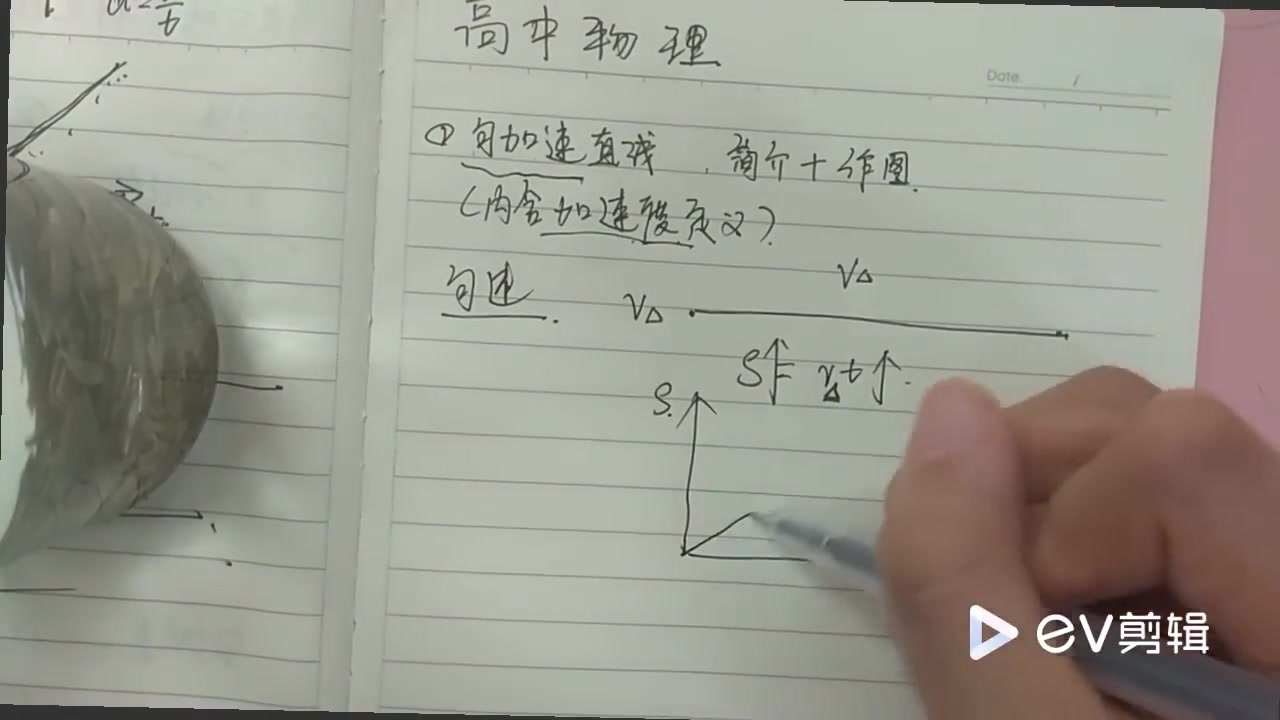 高中物理
Date /
① 匀加速直线，简介+作图.
(内含加速度定义).
匀速. V△ V△
S↑= V△t↑.
S.
ev剪辑